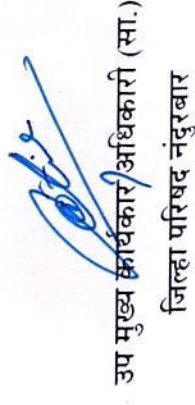 उप मुख्य कार्यकारी अधिकारी (सा.)
जिल्हा परिषद नंदुरबार